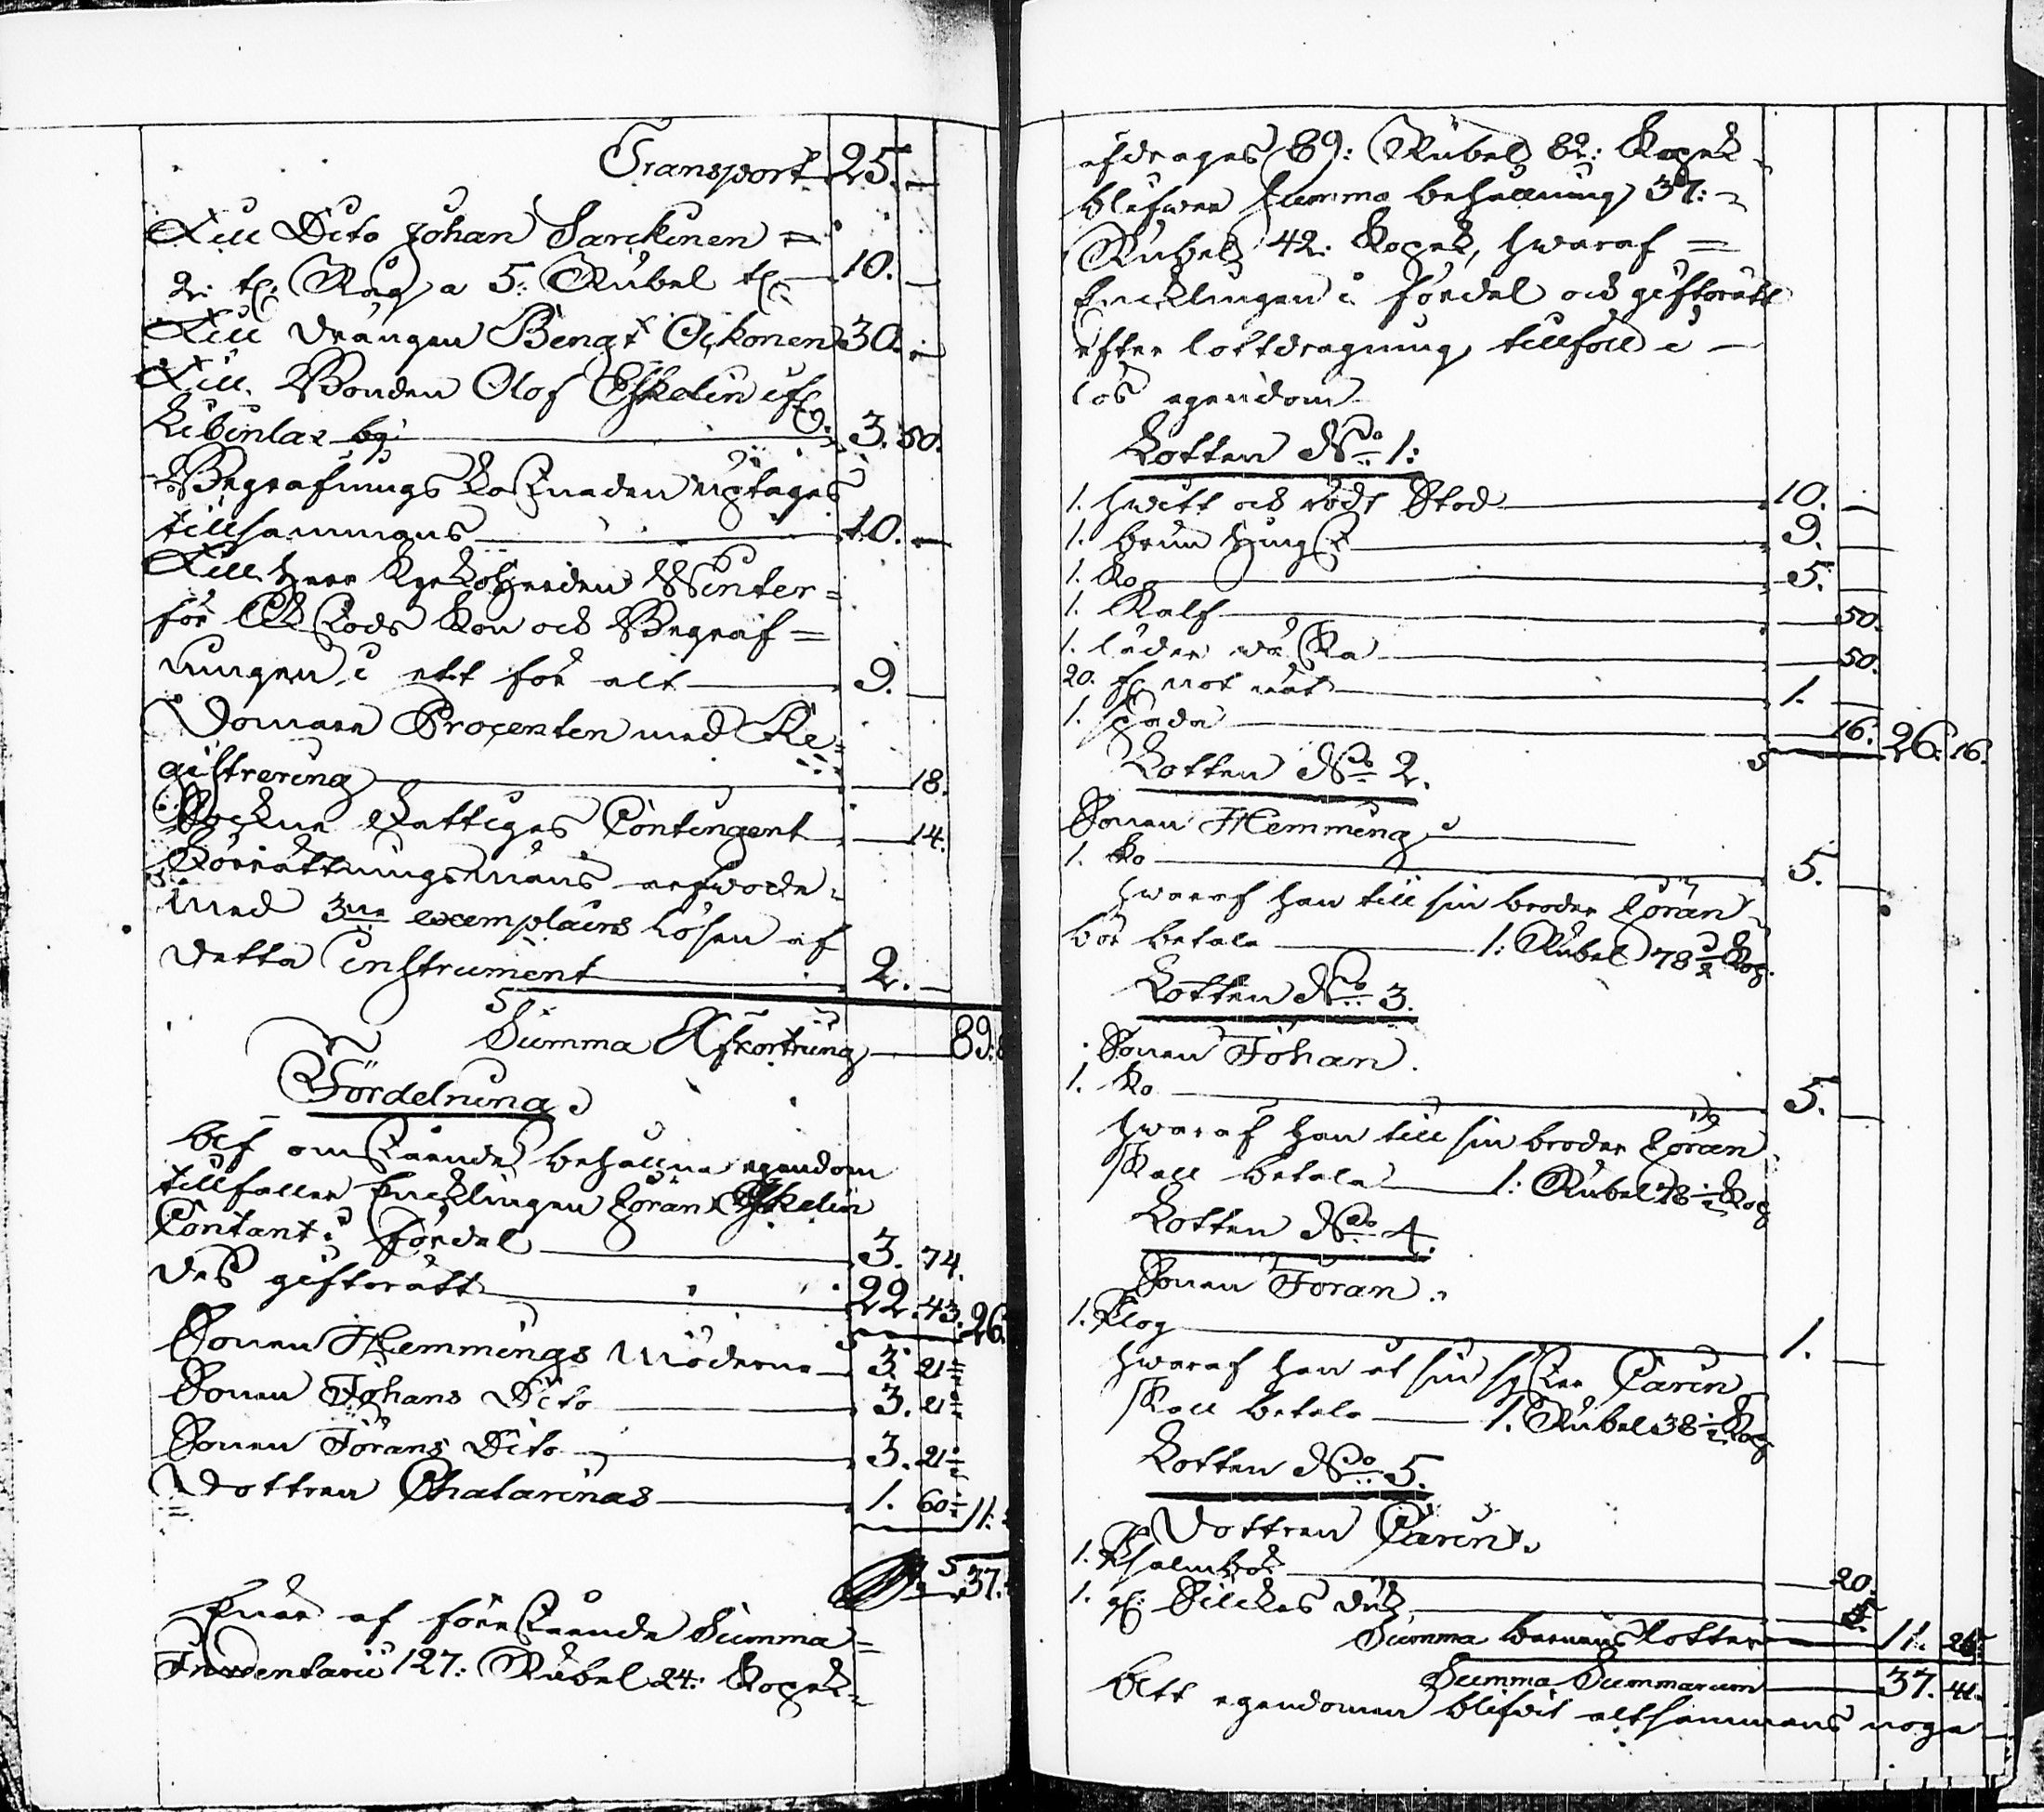 Transport 25. —
Till Dito Johan Sarckinen =
2: t: Råg a 5: Rubel t: — 10. —
Till Drängen Bengt Oikonen 30. —
Till Bonden Olof Eskelin ifr:
Kibinlax by: — 3. 50.
Begrafnings kostnaden uptages
tillsammans — 10. —
Till Herr Kyrkoherden Winter=
för Likstods Kon och Begraf=
ningen i ett för alt — 9. —
Domare Procenten med Re=
gistrering — 18.
Sockne Fattiges Contingent — 14.
Förrättningsmans arfwode
med 3ne exemplairs Lösen af
detta instrument — 2. —
Summa Afkortning — 89:
Fördelning
Af omstående behållne egendom
tillfaller Encklingen Jöran Eskelin
Contant i fördel — 3. 74.
Des giftorätt — 22. 43. 26.
Sonen Hemmings möderne — 3. 21½
Sonen Johans Dito — 3. 21½
Sonen Jörans Dito — 3. 21½
Dottren Chatarinas — 1. 60½ 11:
S 37.
När af förestående Summa =
Inventarii 127: Rubel 24: Kopek
afdrages 89: Rubel 82: Kopek
blifwer Summa behållning 37:
Rubel 42: Kopek, hwaraf =
Encklingen i fördel och giftorätt
efter lottdragning tillföll i —
lös egendom
Lotten No 1:
1. hwitt och rödt Stod — 10. —
1. brun Hingst — 9. —
1. Ko — 5. —
1. Kalf — 50.
1. läder wäska — 50.
20. f: not nät — 1. —
1. spada — 16. 26. 16.
Lotten No 2.
Sonen Hemming
1. Ko — 5. —
hwaraf han till sin broder Jöran
bör betala — 1: Rubel 78½ Kop.
Lotten No 3.
Sonen Johan.
1. Ko — 5. —
hwaraf han till sin broder Jöran
skall betala — 1: Rubel 78½ Kop
Lotten No 4.
Sonen Joran.
1. Plog — 1. —
hwaraf han åt sin syster Carin
skall betala — 1. Rubel 38½ Kop
Lotten No 5.
Dottren Carin.
1. Psalmbok — 20.
1. gl: Silckes duk — 5.
Summa barnens Lotter — 11. 25.
Summa Summarum — 37. 41.
Att egendomen blifwit altsammans noga